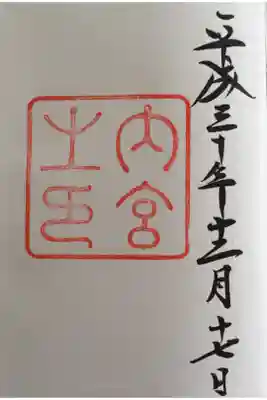 平成三十年十二月十七日
内宮
之印